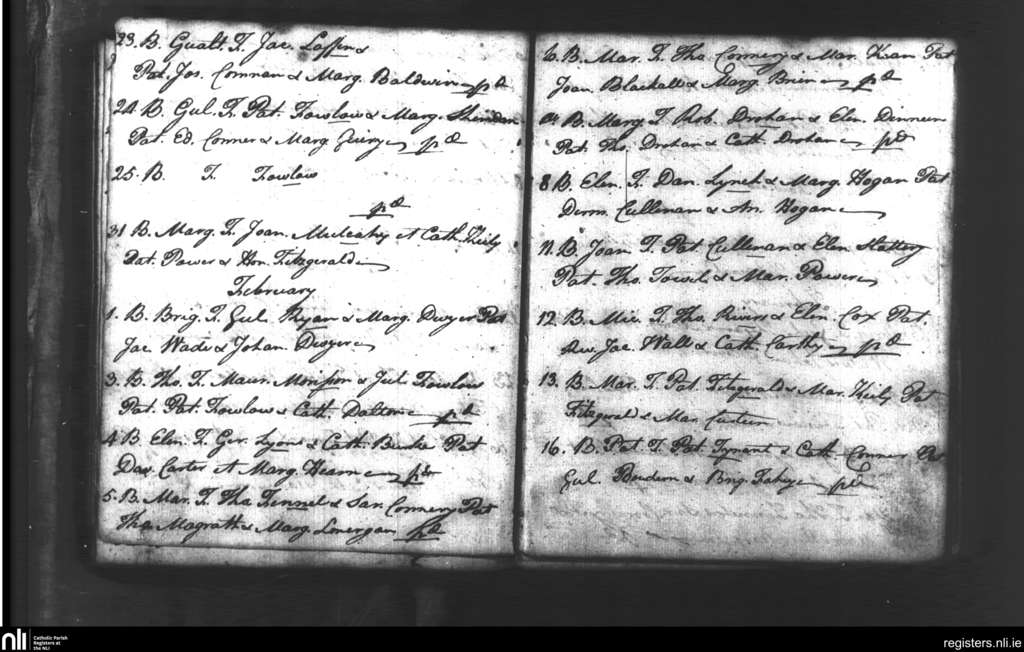 23. B. Gualt. F. Jac. Laffin &
Pat. Jos. Comman & Marg. Baldwin pd
24 B. Gul. F. Pat. Fowlow & Marg. Sheridan
Pat. Ed. Conner & Marg.
25. B. F. Fowlow
pd
31 B. Marg. F. Joan. Mulcahy et Cath. Kiely
Pat. Power & Hon. Fitzgerald
February
1. B. Brig. F. Gul. Ryan & Marg. Dwyer Pat
Jac Wade & Johan. Dwyer
3. B. Tho. F. Maur. Morisson & Jul. Fowlow
Pat. Pat. Fowlow & Cath. Dalton pd
4 B Elen. F. Ger. Lyons & Cath. Burke Pat
Dav. Carter et Marg. Hearn pd
5. B. Mar. F. Tho Fennel & San Connery Pat
Tho Magrath & Marg. Lonergan pd
6. B. Mar. F. Tho Connery & Mar. Kean Pat
Joan. Blackall & Marg. Brien pd
B. Marg F. Rob. Drohan & Elen. Dinneen
Pat. Tho. Drohan & Cath. Drohan pd
8 B. Elen. F. Dan. Lynch & Marg. Hogan Pat
Derm. Cullenan & An. Hogan
11. B. Joan F. Pat Cullenan & Elen. Slattery
Pat. Tho. Towel & Mar. Power
12 B. Mic. F. Tho. Rivers & Elen. Cox Pat.
Rev. Jac. Wall & Cath. Carthy pd
13. B. Mar. F. Pat. Fitzgerald & Mar. Kiely Pat
Fitzgerald & Mar.
16. B. Pat F. Pat. Tynant & Cath Conner Pat
Gul. & Brig. Fahey pd
nli
Catholic Parish
Registers at
the NLI
registers.nli.ie